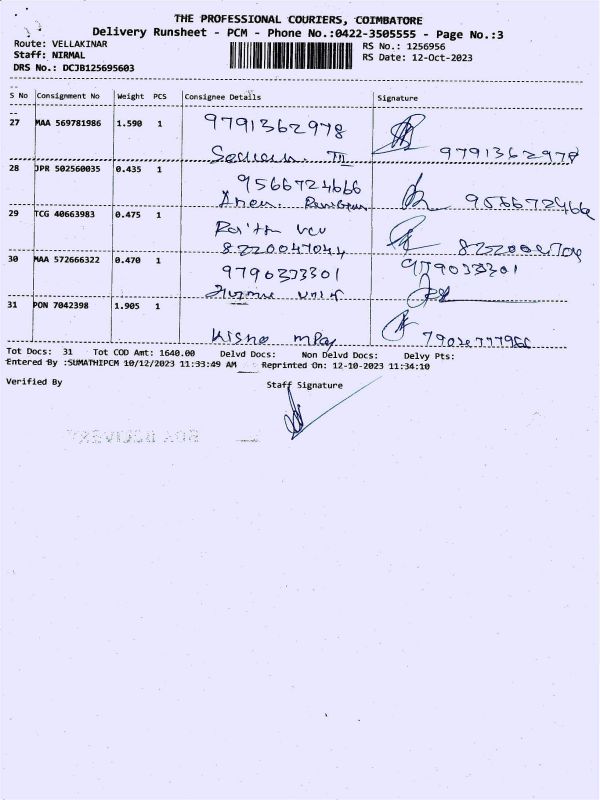 THE PROFESSIONAL COURIERS, COIMBATORE
Delivery Runsheet - PCM - Phone No.:0422-3505555 - Page No.:3
Route: VELLAKINAR RS No.: 1256956
Staff: NIRMAL RS Date: 12-Oct-2023
DRS No.: DCJB125695603
S No Consignment No Weight PCS Consignee Details Signature
27 MAA 569781986 1.590 1 9791362978
9791362978
28 JPR 502560035 0.435 1 9566724666
956672466
29 TCG 40663983 0.475 1
8220047044
30 MAA 572666322 0.470 1 9790333301
31 PON 7042398 1.905 1
Tot Docs: 31 Tot COD Amt: 1640.00 Delvd Docs: Non Delvd Docs: Delvy Pts:
Entered By :SUMATHIPCM 10/12/2023 11:33:49 AM Reprinted On: 12-10-2023 11:34:10
Verified By Staff Signature